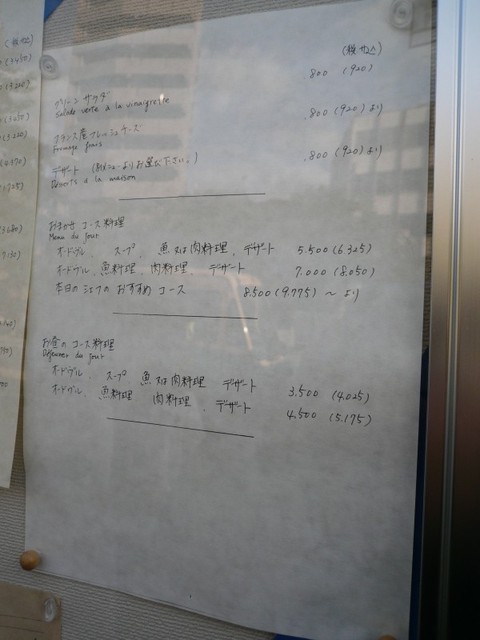 (税込)
800 (920)
グリーンサラダ
Salade verte a la vinaigrette
800 (920) より
フランス産フレッシュチーズ
Fromage frais
800 (920) より
デザート (別メニューよりお選び下さい。)
Desserts a la maison
おまかせ コース料理
Menu du jour
オードヴル スープ 魚又は肉料理、デザート 5.500 (6.325)
オードヴル 魚料理、肉料理 デザート 7.000 (8.050)
本日のシェフのおすすめ コース 8.500 (9.775) ~ より
お昼のコース料理
Déjeuner du jour
オードヴル スープ 魚又は肉料理 デザート 3.500 (4.025)
オードヴル、魚料理 肉料理、デザート 4.500 (5.175)